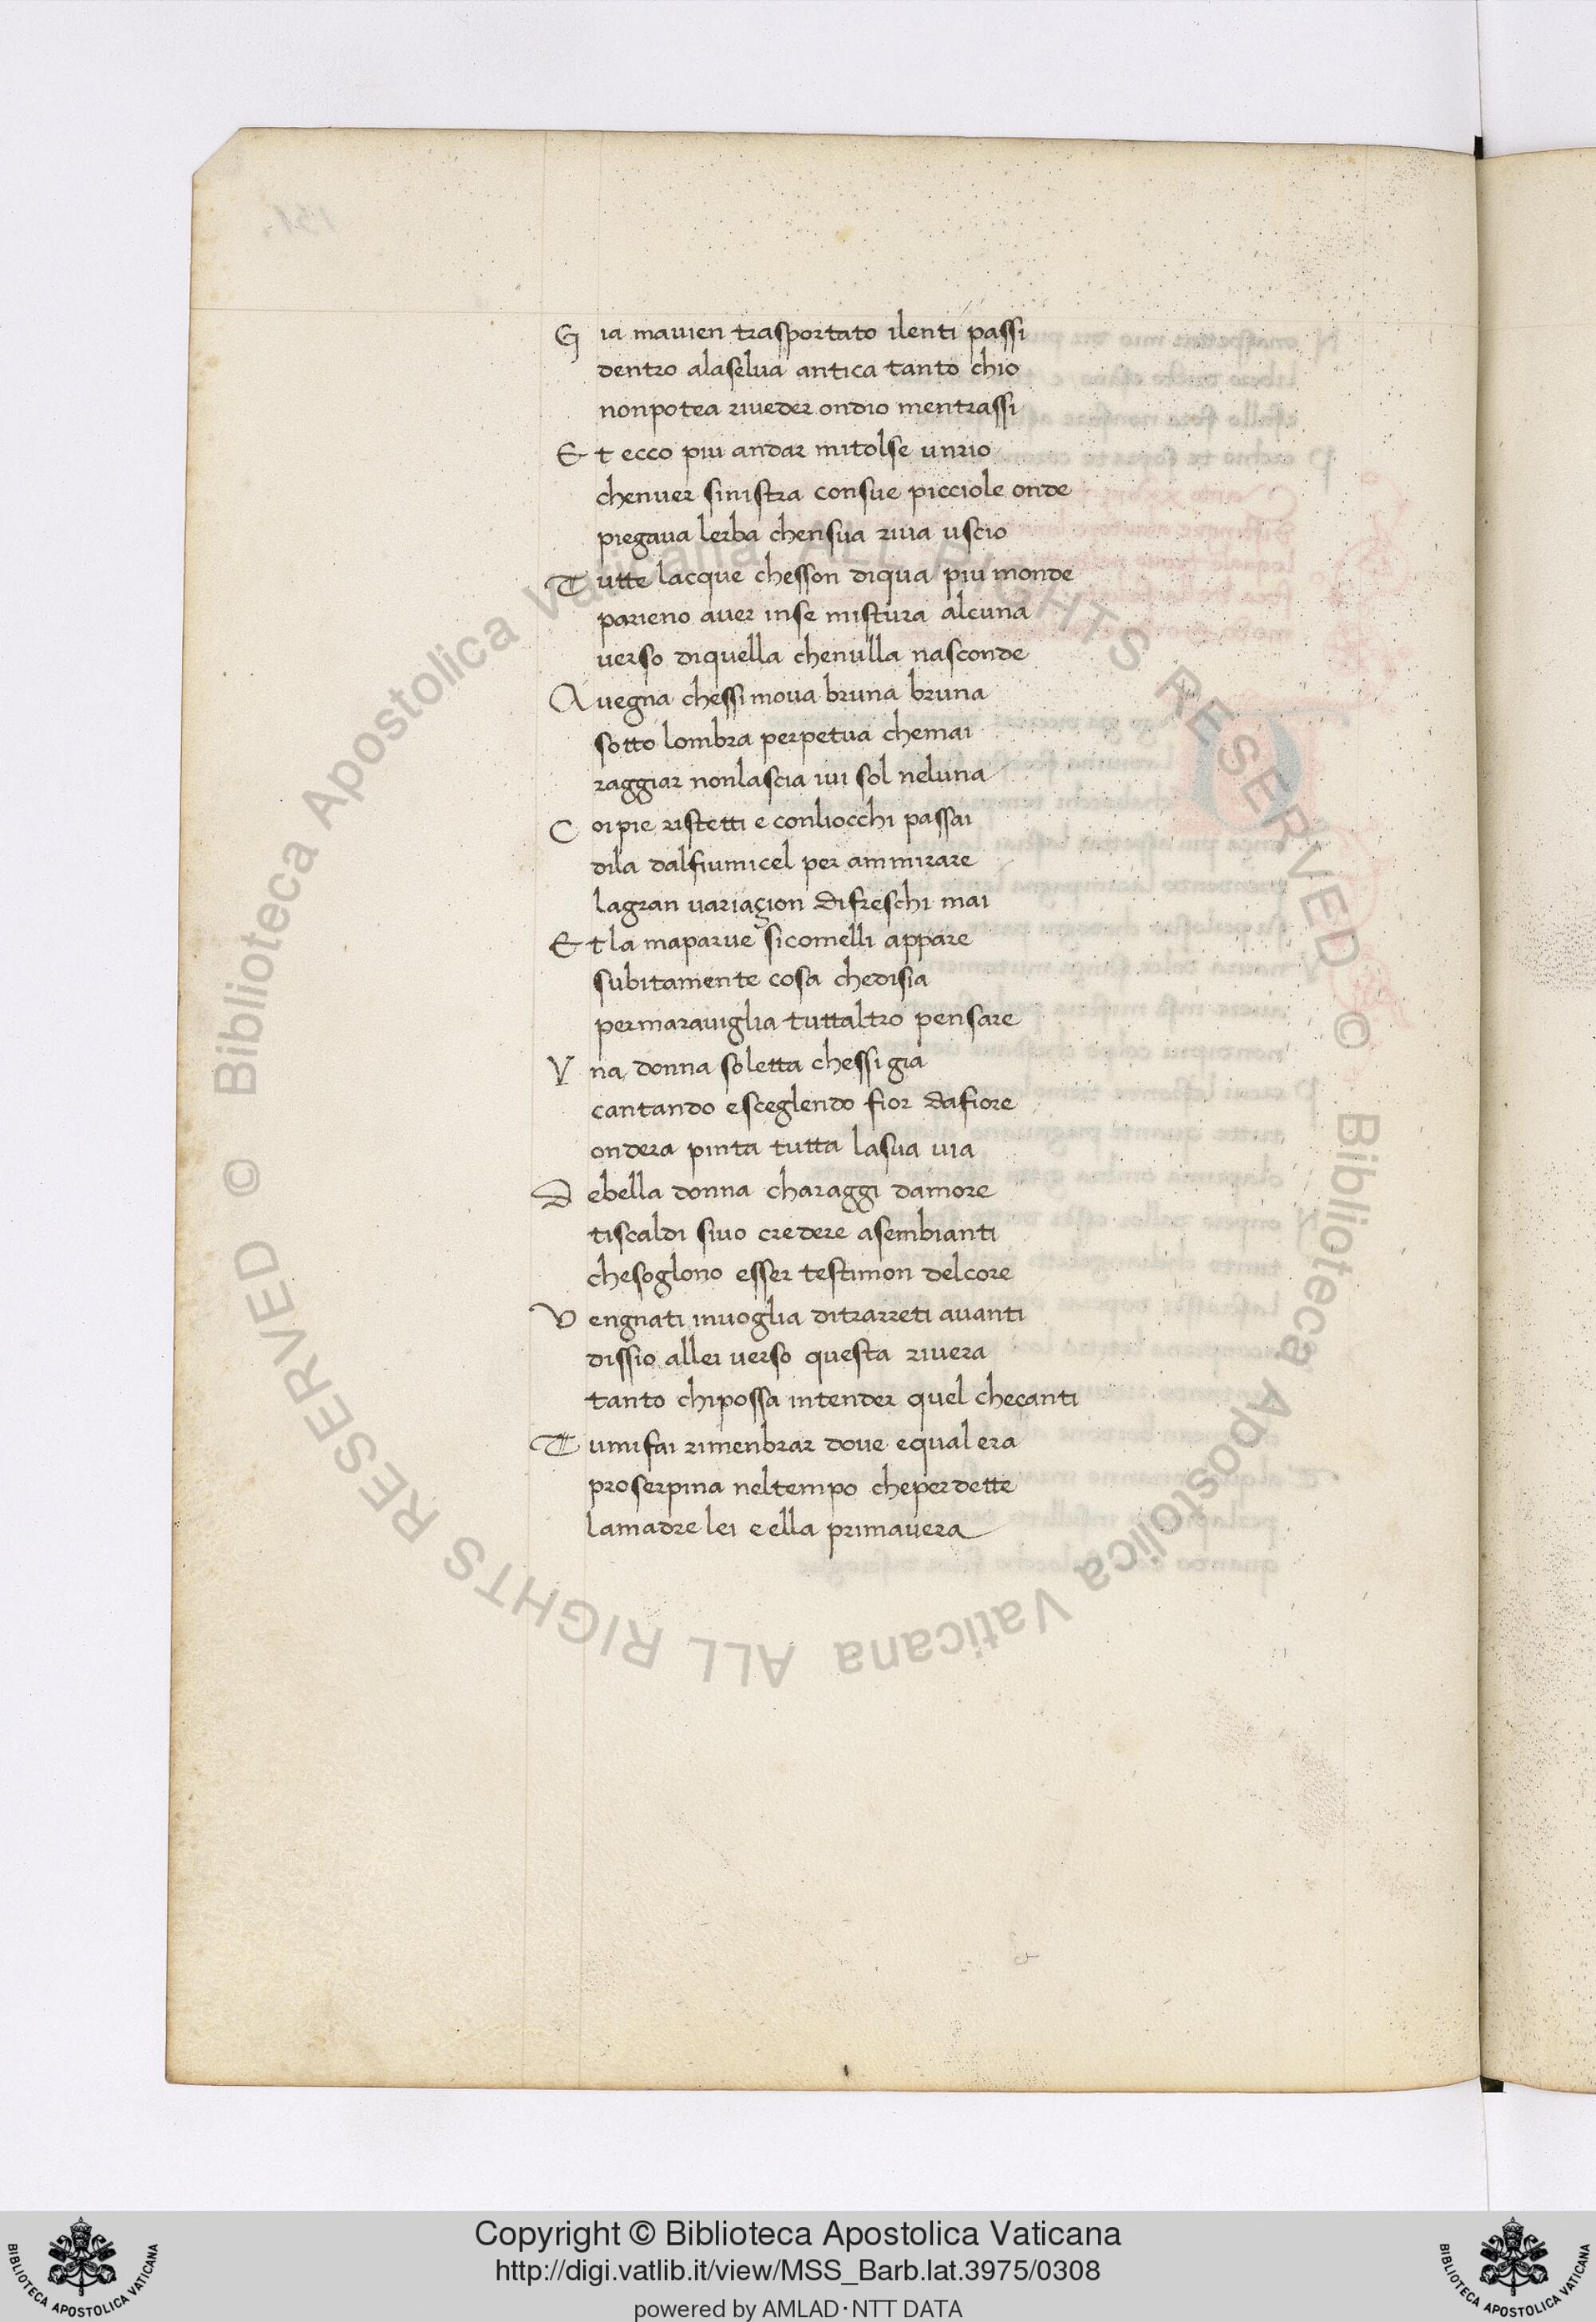 Gia mauien trasportato ilenti passi
dentro alaselua antica tanto chio
nonpotea riueder ondio mentrassi
Et ecco piu andar mitolse unrio
chenuer sinistra consue picciole onde
piegaua lerba chensua riua uscio
Tutte lacque chesson diqua piu monde
parieno auer inse mistura alcuna
verso diquella chenulla nasconde
Auegna chessi moua bruna bruna
sotto lombra perpetua chemai
raggiar nonlascia iui sol neluna
Coi pie ristetti e conliocchi passai
dila dalfiumicel per ammirare
lagran uariaçion difreschi mai
Et la maparue sicomelli appare
subitamente cosa chedisia
permarauiglia tuttaltro pensare
Vna donna soletta chessi gia
cantando esceglendo fior dafiore
ondera pinta tutta lasua uia
Debella donna charaggi damore
tiscaldi siuo credere asembianti
chesoglono esser testimon delcore
Vengnati inuoglia ditrarreti auanti
dissio allei verso questa riuera
tanto chipossa intender quel checanti
Tumifai rimenbrar doue equal era
proserpina neltempo cheperdette
lamadre lei e ella primauera
© Biblioteca Apostolica Vaticana ALL RIGHTS RESERVED © Biblioteca Apostolica Vaticana ALL RIGHTS RESERVED
Copyright © Biblioteca Apostolica Vaticana
http://digi.vatlib.it/view/MSS_Barb.lat.3975/0308
powered by AMLAD·NTT DATA
BIBLIOTECA APOSTOLICA VATICANA
BIBLIOTECA APOSTOLICA VATICANA